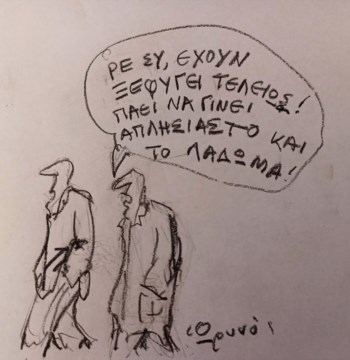 ΡΕ ΣΥ, ΕΧΟΥΝ
ΞΕΦΥΓΕΙ ΤΕΛΕΙΩΣ!
ΠΑΕΙ ΝΑ ΓΙΝΕΙ
ΑΠΛΗΣΙΑΣΤΟ ΚΑΙ
ΤΟ ΛΑΔΩΜΑ!